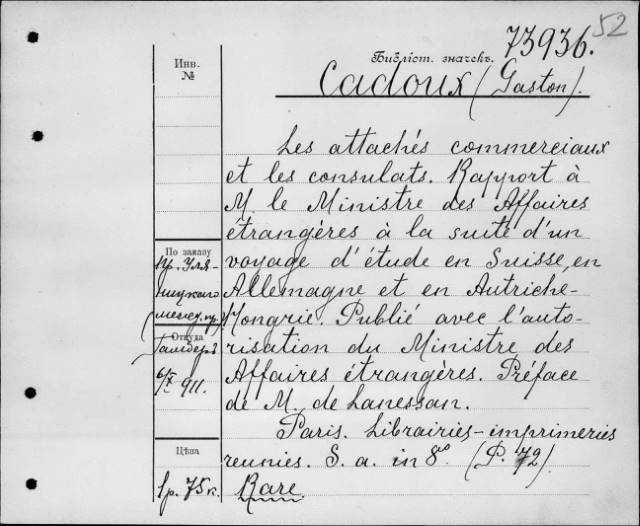 52
73936.
Библіот. значекъ.
Инв.
№
Cadoux (Gaston).
Les attachés commerciaux
et les consulats. Rapport à
M. le Ministre des Affaires
étrangères à la suite d'un
voyage d'étude en Suisse, en
Allemagne et en Autriche-
Hongrie. Publié avec l'auto-
risation du Ministre des
Affaires étrangères. Préface
de M. de Lanessan.
Paris. Librairies-imprimeries
reunies. S. a. in 8° (P. 72).
Rare.
По заказу
пр. Уля-
ницкаго
Откуда
911.
Цѣна
1р. 75к.